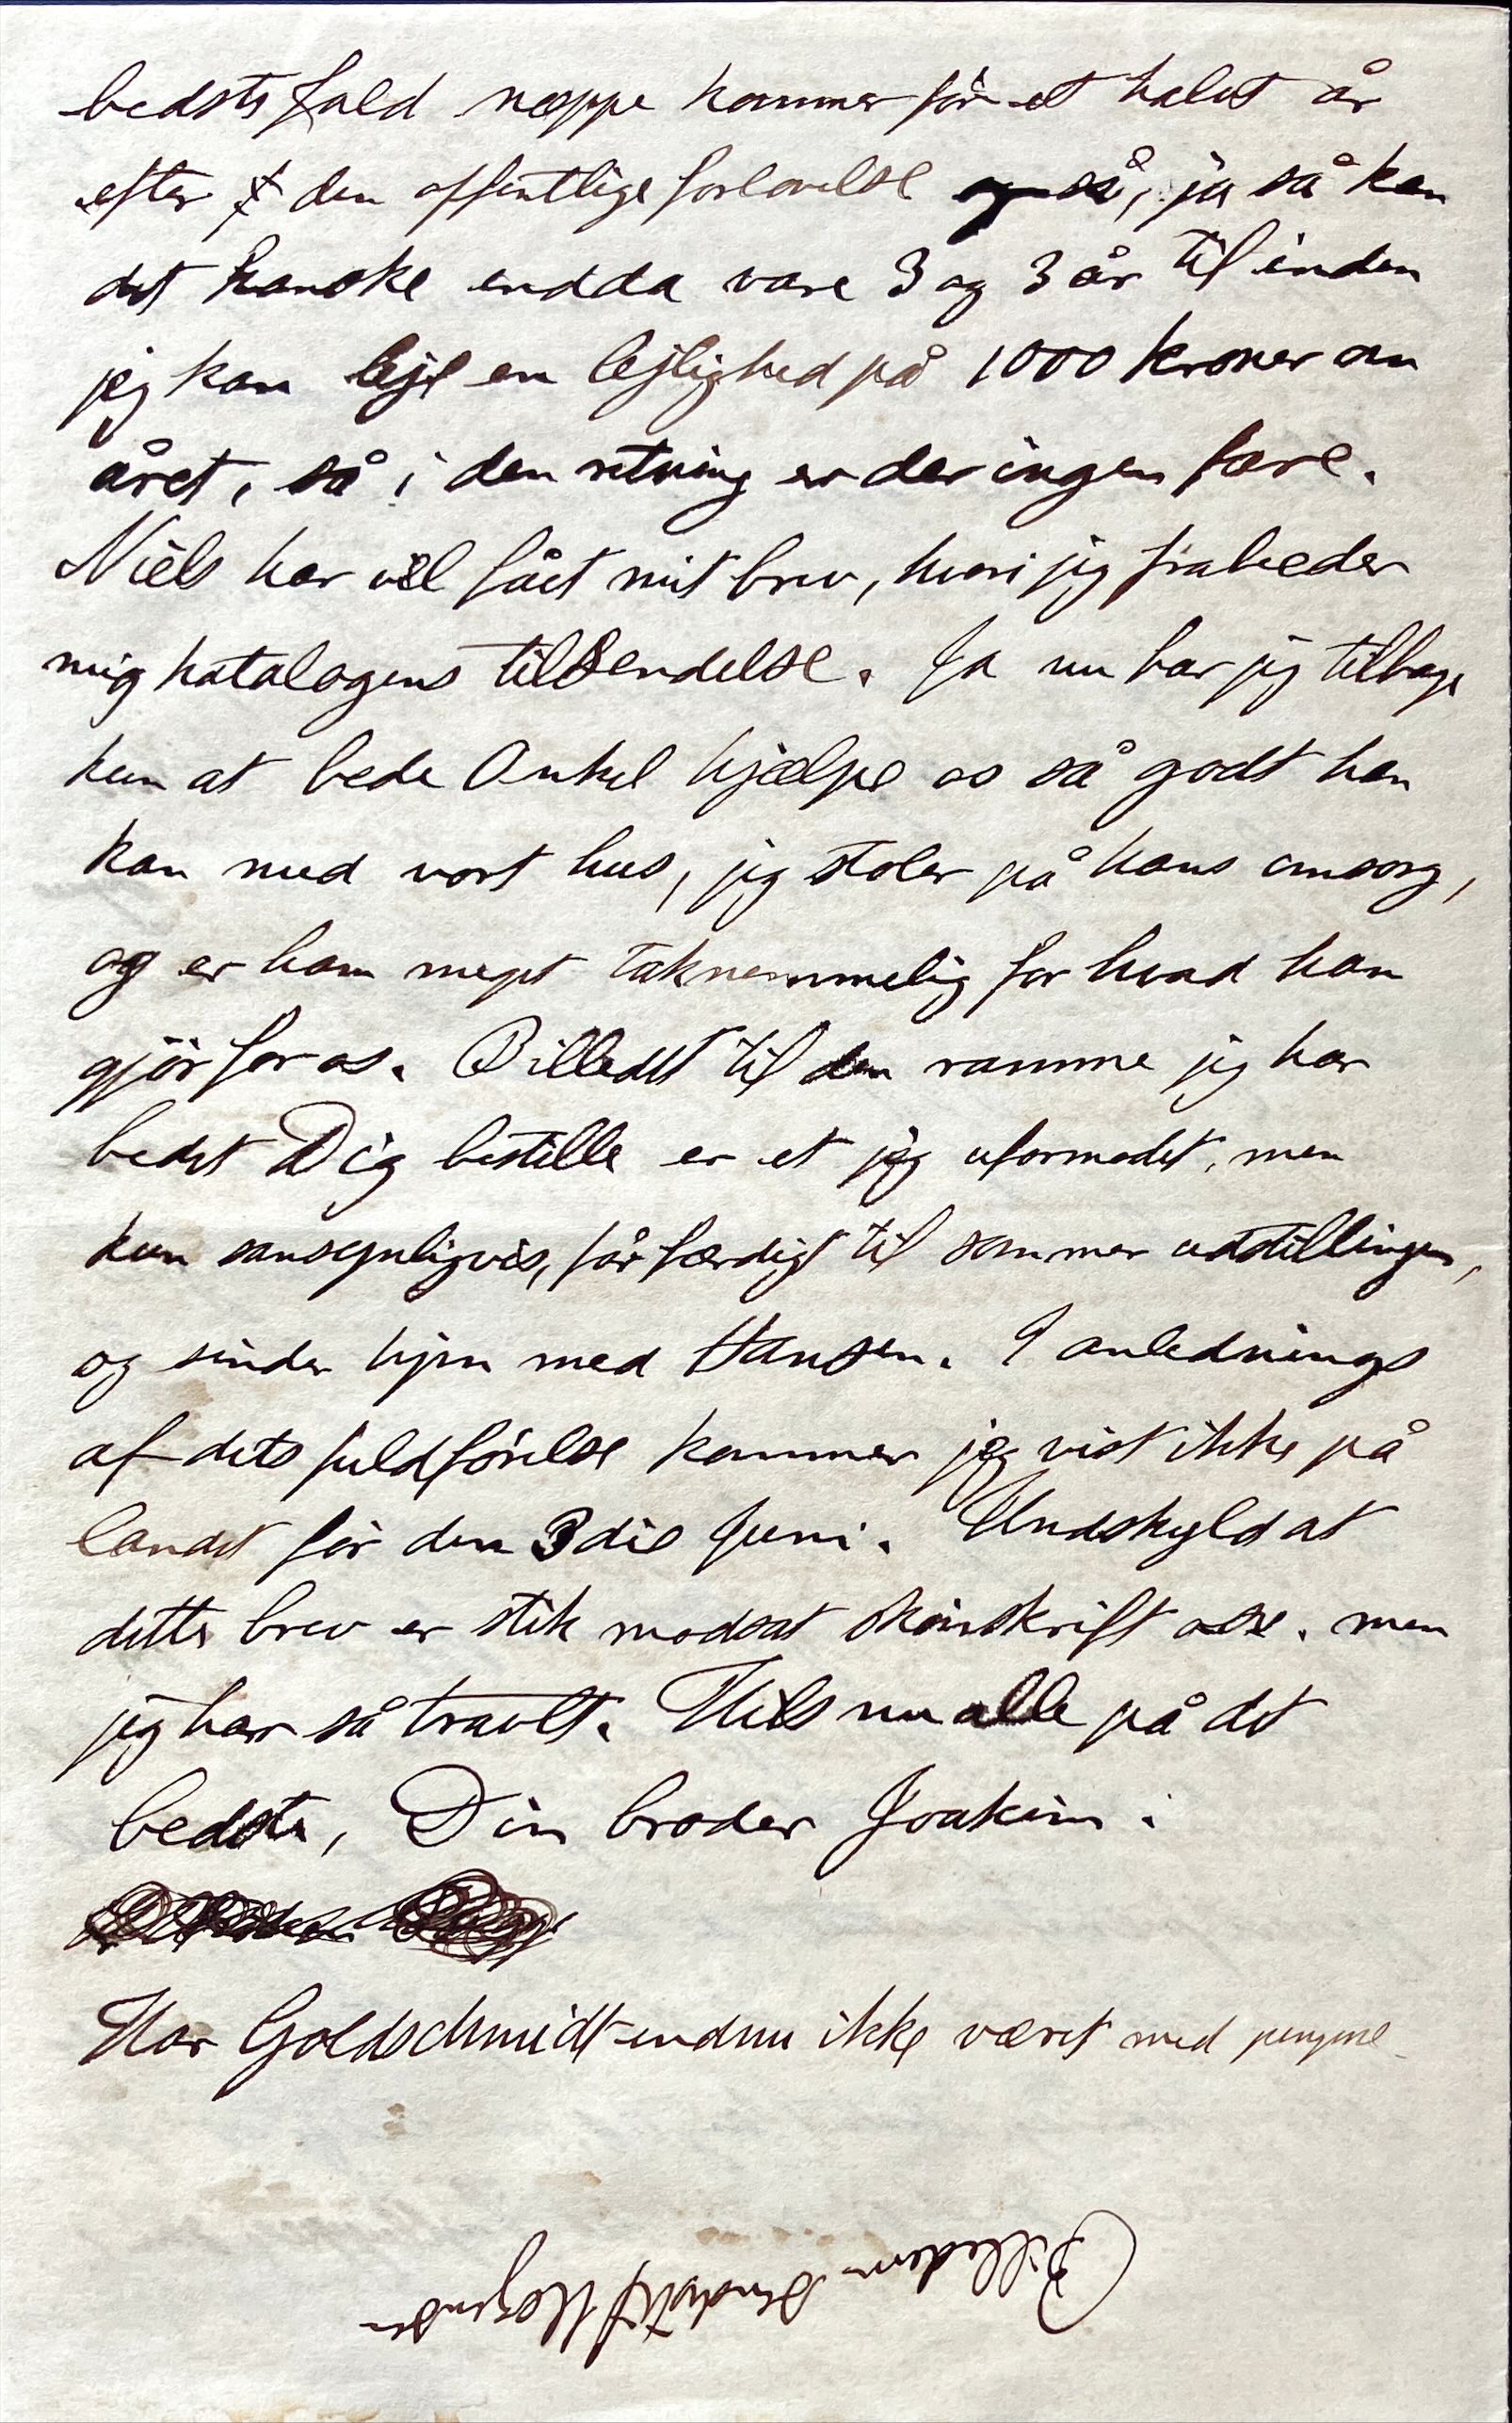 bedste fald næppe kommer før et halvt år
efter den offentlige forlovelse og så, ja så kan
det kanske endda vare 3 og 3 år til inden
jeg kan leje en lejlighed på 1000 kroner om
året, så i den retning er der ingen fare.
Niels har vel fået mit brev, hvori jeg frabeder
mig katalogens tilsendelse. Ja nu har jeg tilbage
kun at bede Onkel hjælpe os så godt han
kan med vort hus, jeg stoler på hans omsorg,
og er ham meget taknemmelig for hvad han
gjör for os. Billedet til den ramme jeg har
bedet Dig bestille er et jeg uformodet, men
kun sansynligvis, får færdigt til sommer udstillingen,
og sender hjem med Hansen. I anlednings
af dets fuldförelse kommer jeg vist ikke på
landet för den 3die Juni. Undskyld at
dette brev er stik modsat skönskrift men
jeg har så travlt. Hils nu alle på det
bedste, Din broder Joakim.
Har Goldschmidt endnu ikke været med pengene
Billederne